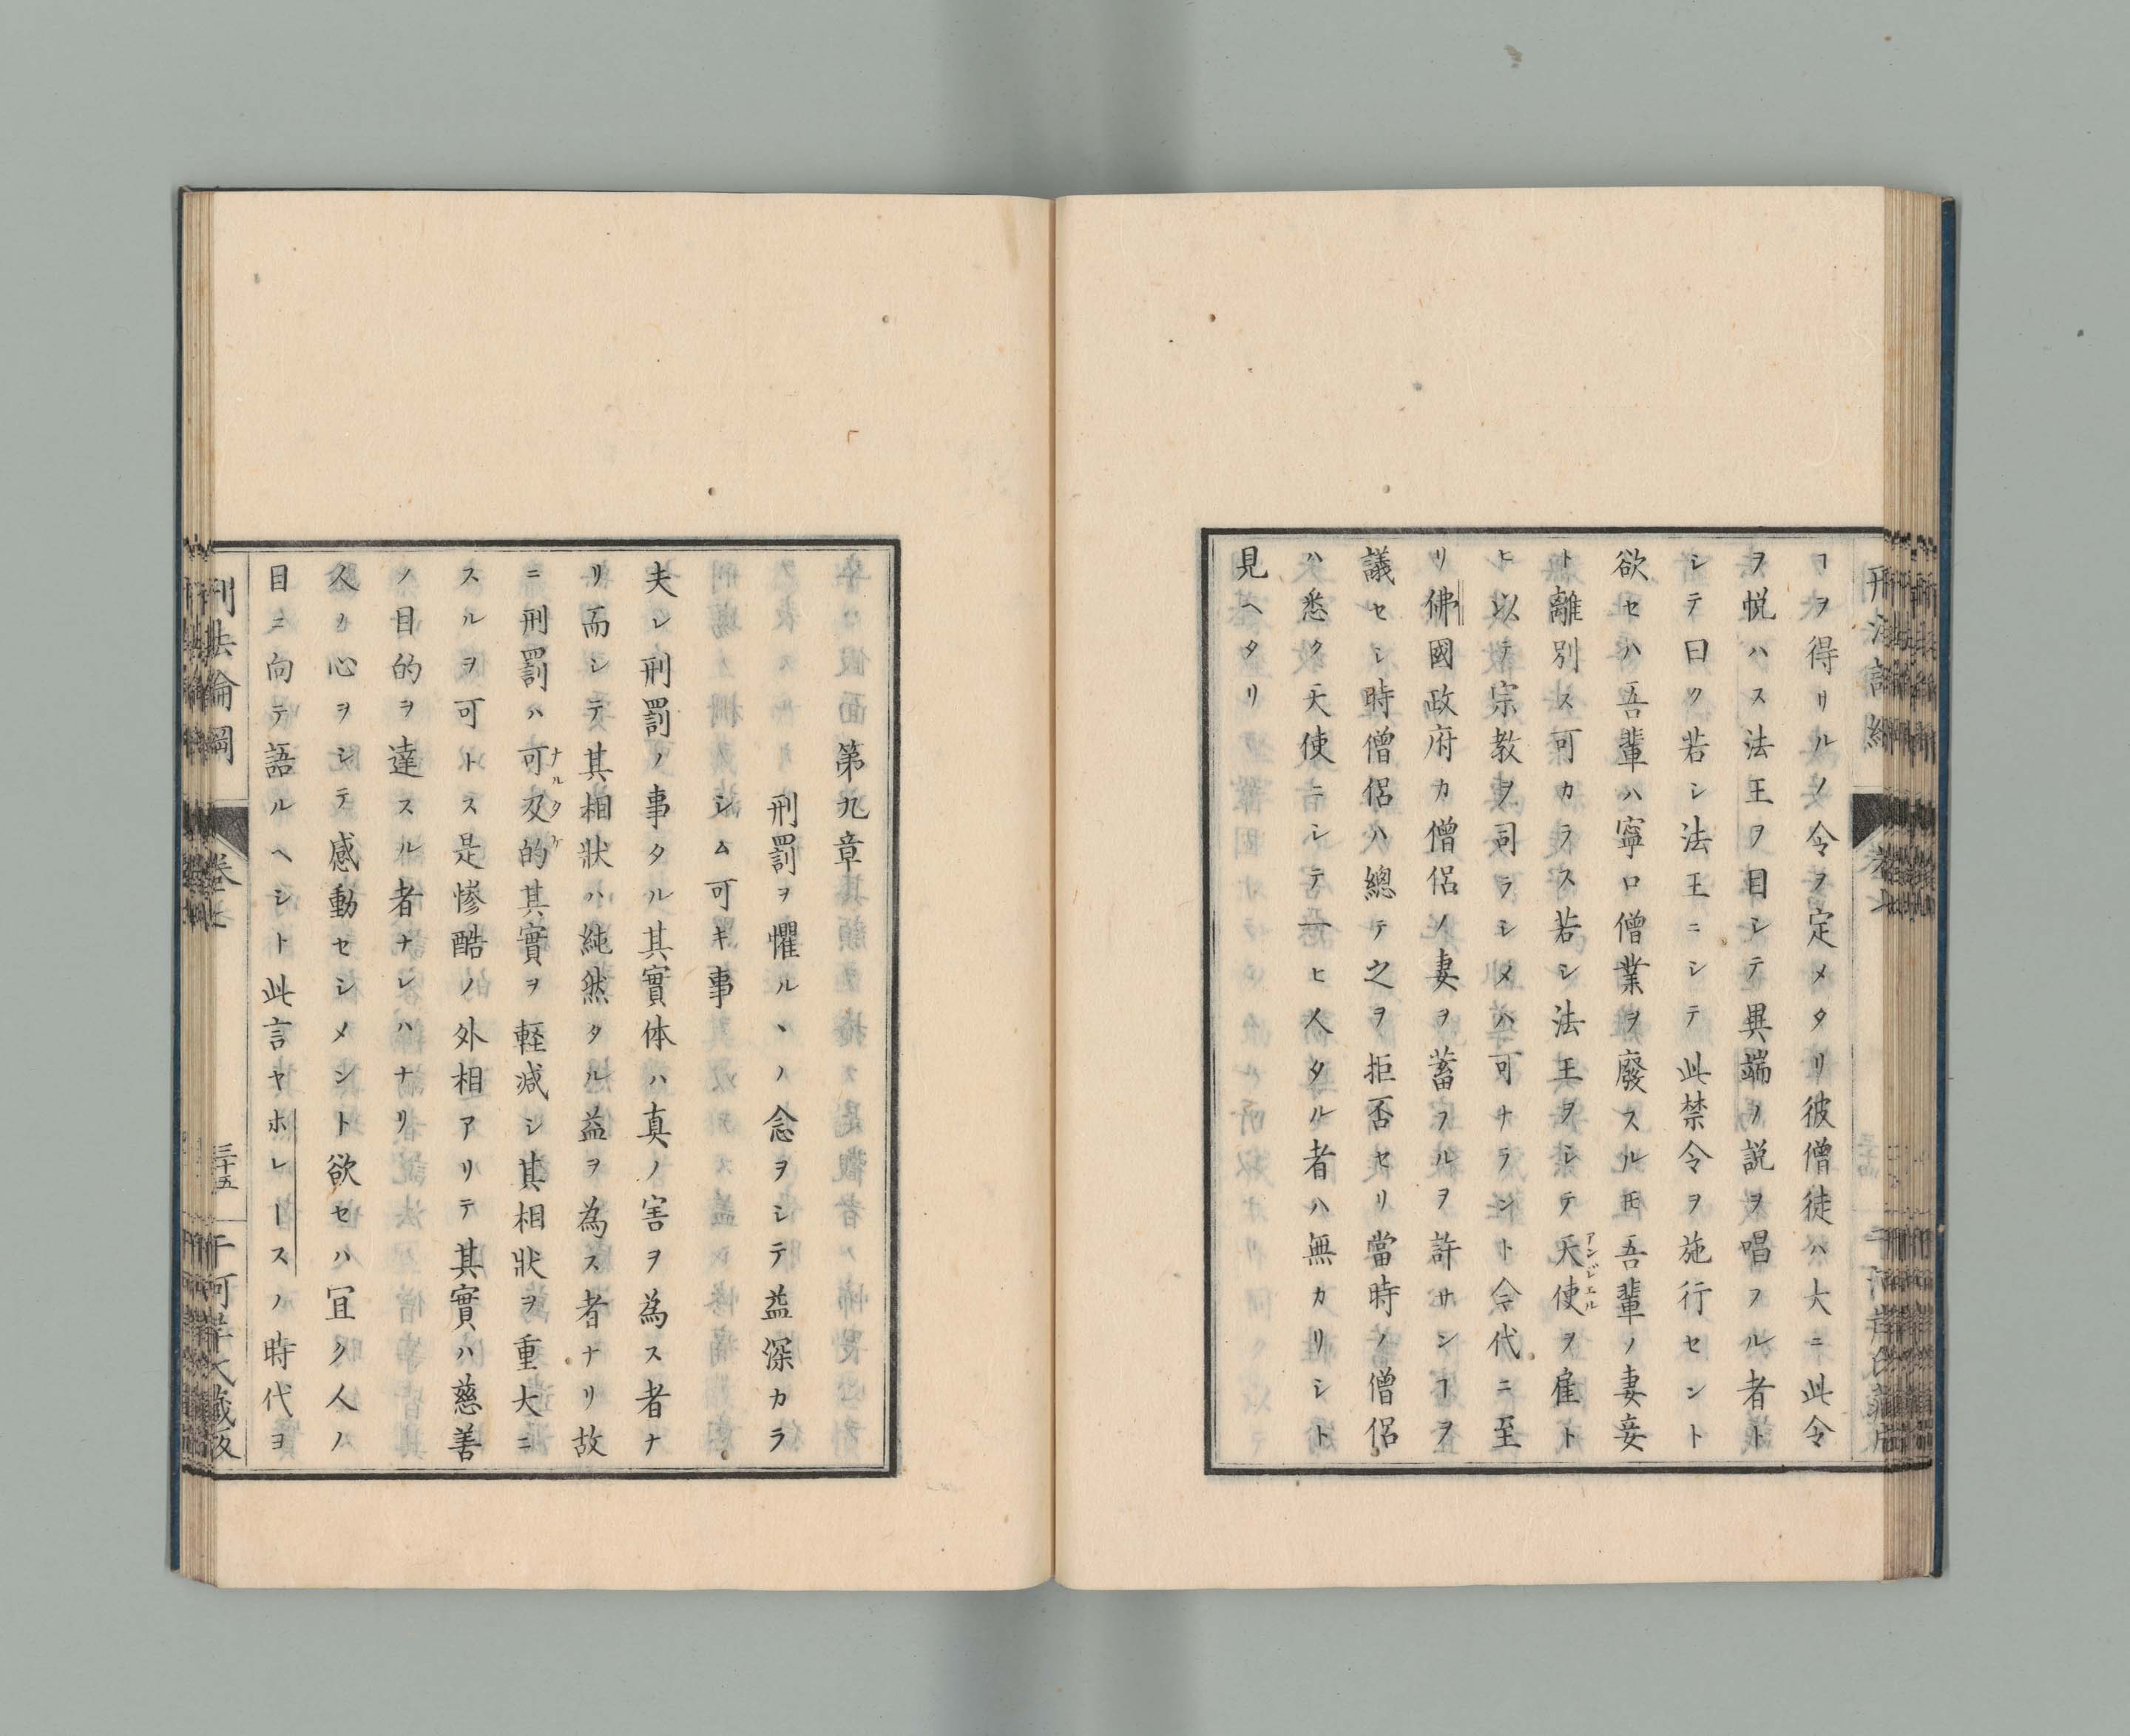 ヿヲ得リルノ令ヲ定メタリ彼僧徒ハ大ニ此令
ヲ悦ハス法王ヲ目シテ異端ノ説ヲ唱フル者ト
シテ曰ク若シ法王ニシテ此禁令ヲ施行セント
欲セハ吾輩ハ寧ロ僧業ヲ廢スルモ吾輩ノ妻妾
ト離別ス可カラス若シ法王ヲシテ天使ヲ雇ト
アンジエル
ヒ以テ宗教ヲ司ラシメハ可ナラント今代ニ至
リ佛國政府カ僧侶ノ妻ヲ蓄フルヲ許サンヿヲ
議セシ時僧侶ハ總テ之ヲ拒否セリ當時ノ僧侶
ハ悉ク天使ニシテ一ヒ人タル者ハ無カリシト
見ヘタリ
第九章
刑罰ヲ懼ルヽノ念ヲシテ益深カラ
シム可キ事
夫レ刑罰ノ事タル其實体ハ真ノ害ヲ為ス者ナ
リ而シテ其相狀ハ純然タル益ヲ為ス者ナリ故
ニ刑罰ハ可及的其實ヲ輕減シ其相狀ヲ重大ニ
ナルタケ
スルヲ可トス是惨酷ノ外相アリテ其實ハ慈善
ノ目的ヲ達スル者ナレハナリ
人ノ心ヲシテ感動セシメント欲セハ冝ク人ノ
目ニ向テ語ルヘシト此言ヤホレースノ時代ヲ
刑法論綱
卷七
三十五